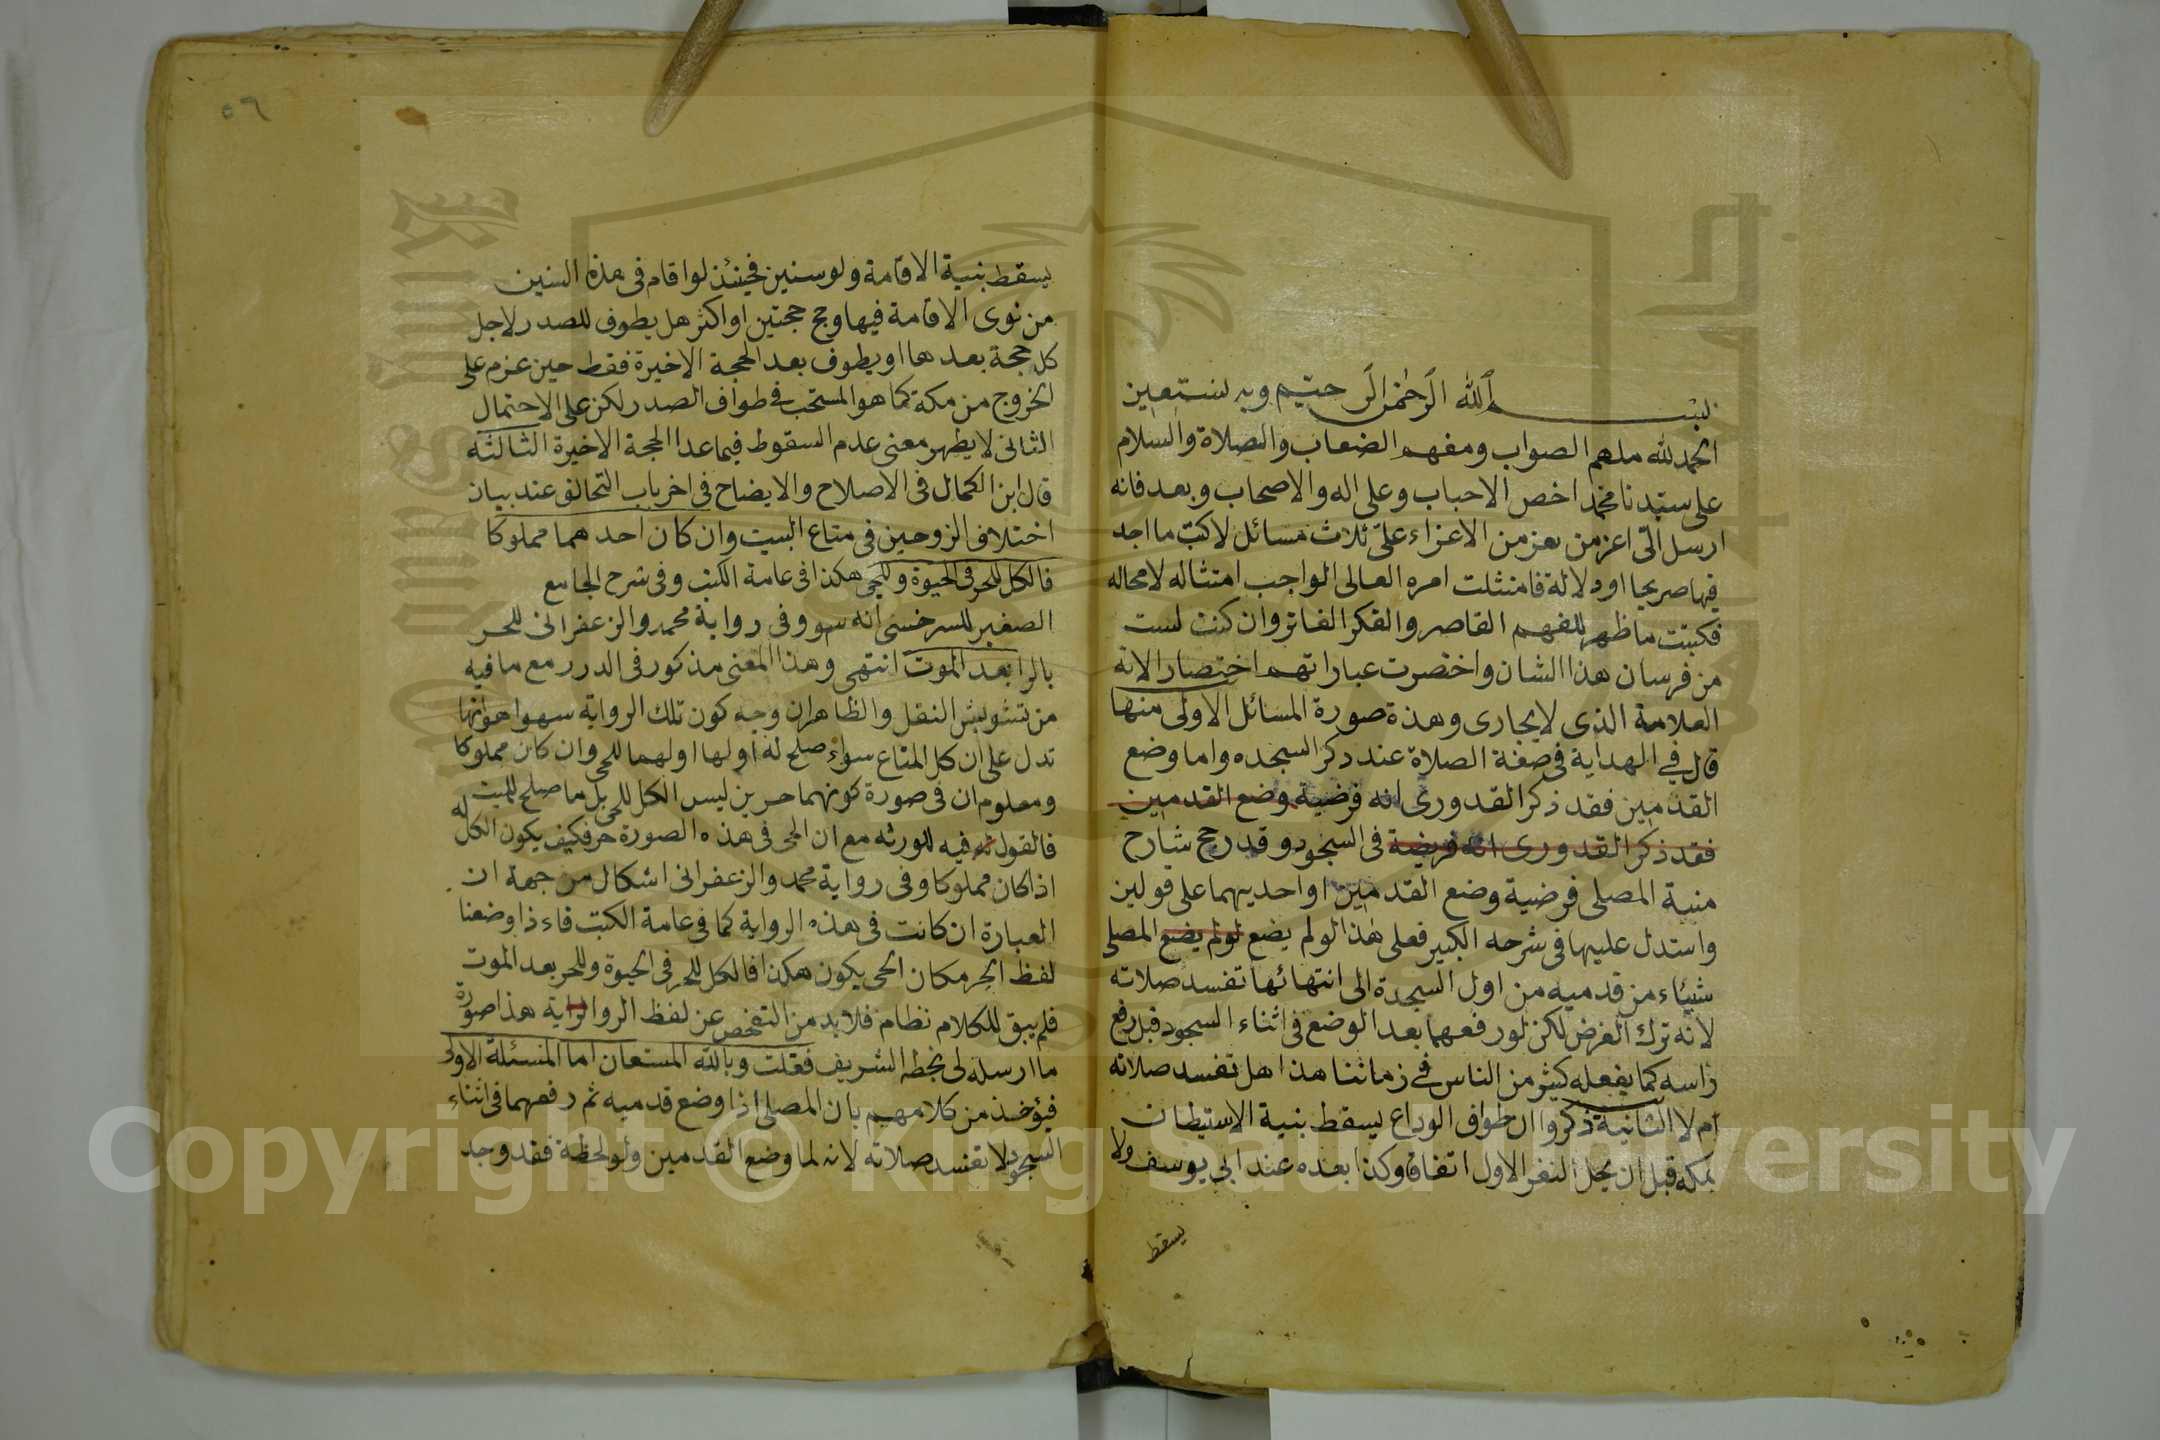 بسم الله الرحمن الرحيم وبه نستعين
الحمد لله ملهم الصواب ومفهم الضعاب والصلاة والسلام
على سيدنا محمد اخص الاحباب وعلى اله والاصحاب وبعد فانه
ارسل الىّ اعز من يعز من الاعزاء علىّ ثلاث مسائل لاكتب ما اجد
فيها صريحا او دلالة فامتثلت امره العالى الواجب امتثاله لا محاله
فكتبت ما ظهر للفهم القاصر والفكر الفاتر وان كنت لست
من فرسان هذا الشان واختصرت عباراتهم اختصارا لانه
العلامة الذى لا يجارى وهذة صورة المسائل الاولى منها
قال في الهداية فى صفة الصلاة عند ذكر السجده واما وضع
القدمين فقد ذكر القدورى انه فرضية وضع القدمين
فقد ذكر القدورى انه فريضة فى السجود وقد رجح شارح
منية المصلى فرضية وضع القدمين او احديهما على قولين
واستدل عليها فى شرحه الكبير فعلى هذا لو لم يضع لو لم يضع المصلى
شيئاء من قدميه من اول السجدة الى انتهائها تفسد صلاته
لانه ترك الفرض لكن لو رفعهما بعد الوضع فى اثناء السجود قبل رفع
راسه كما يفعله كثير من الناس في زماننا هذا هل تفسد صلاته
ام لا الثانية ذكروا ان طواف الوداع يسقط بنية الاستيطان
بمكه قبل ان يحل النفر الاول اتفاقا وكذا بعده عند ابى يوسف ولا
يسقط
٥٦
يسقط بنية الاقامة ولو سنين فحينئذ لو اقام فى هذه السنين
من نوى الاقامة فيها وحج حجتين او اكثر هل يطوف للصدر لاجل
كل حجة بعدها او يطوف بعد الحجة الاخيرة فقط حين عزم على
الخروج من مكة كما هو المستحب في طواف الصدر لكن على الاحتمال
الثانى لا يظهر معنى عدم السقوط فيما عدا الحجة الاخيرة الثالثة
قال ابن الكمال فى الاصلاح والايضاح فى اخر باب التحالف عند بيان
اختلاف الزوجين فى متاع البيت وان كان احدهما مملوكا
فالكل للحر فى الحيوة وللحى هكذا فى عامة الكتب وفى شرح الجامع
الصغير للسرخسى انه سهو وفى رواية محمد والزعفرانى للحر
بالرا بعد الموت انتهى وهذا المعنى مذكور فى الدرر مع ما فيه
من تشويش النقل والظاهر ان وجه كون تلك الرواية سهوا هو انها
تدل على ان كل المتاع سواء صلح له او لها او لهما للحى وان كان مملوكا
ومعلوم ان فى صورة كونهما حرين ليس الكل للحى بل ما صلح للميت
فالقول له فيه لورثه مع ان الحى فى هذه الصورة حر فكيف يكون الكل له
اذا كان مملوكا وفى رواية محمد والزعفرانى اشكال من جهة ان
العبارة ان كانت فى هذه الرواية كما فى عامة الكتب فاء ذا وضعنا
لفظ الحر مكان الحى يكون هكذا فالكل للحر فى الحيوة وللحر بعد الموت
فلم يبق للكلام نظام فلا بد من التفحص عن لفظ الرواية هذا صورة
ما ارسله لى بخطه الشريف فقلت وبالله المستعان اما المسئلة الاولى
فيؤخذ من كلامهم بان المصلى اذا وضع قدميه ثم رفعهما فى اثناء
السجود لا تفسد صلاته لانه لما وضع القدمين ولو لحظة فقد وجد
Copyright © King Saud University